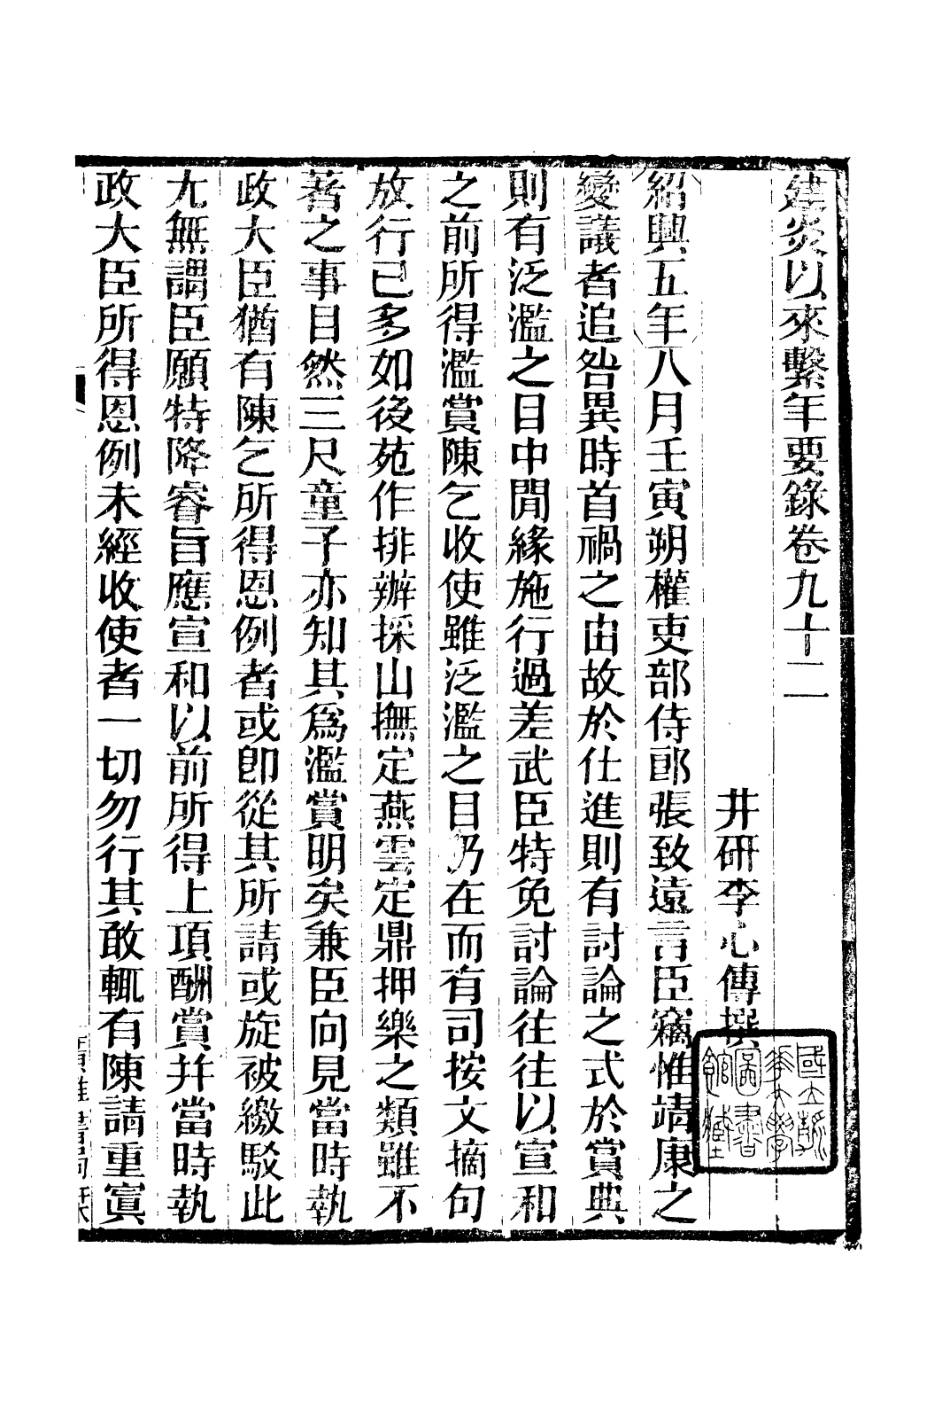 建炎以來繫年要錄卷九十二
井研李心傳撰
紹興五年八月壬寅朔權吏部侍郎張致遠言臣竊惟靖康之
變議者追咎異時首禍之由故於仕進則有討論之式於賞典
則有泛濫之目中閒緣施行過差武臣特免討論往往以宣和
之前所得濫賞陳乞收使雖泛濫之目仍在而有司按文摘句
放行已多如後苑作排辦採山撫定燕雲定鼎押樂之類雖不
著之事目然三尺童子亦知其爲濫賞明矣兼臣向見當時執
政大臣猶有陳乞所得恩例者或卽從其所請或旋被繳駁此
尤無謂臣願特降睿旨應宣和以前所得上項酬賞幷當時執
政大臣所得恩例未經收使者一切勿行其敢輒有陳請重寘
國立清華大學圖書館藏